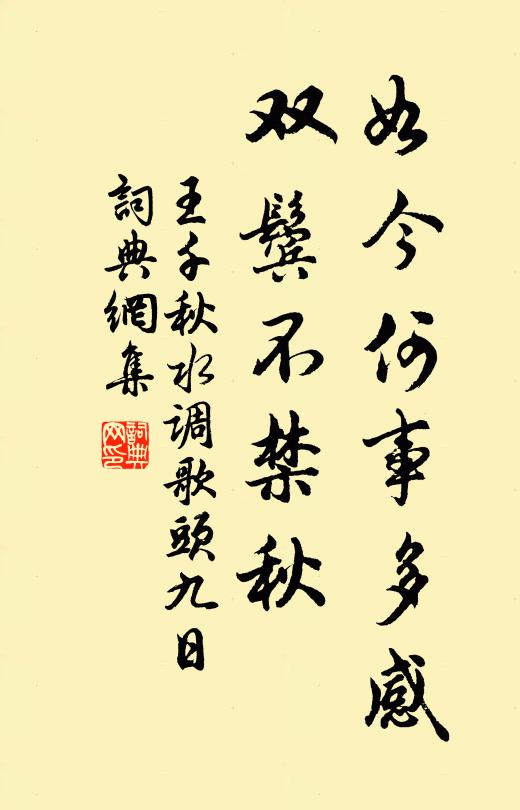 如今何事多感
双鬓不禁秋
王千秋水调歌頭九日
詞典網集
詞典网印